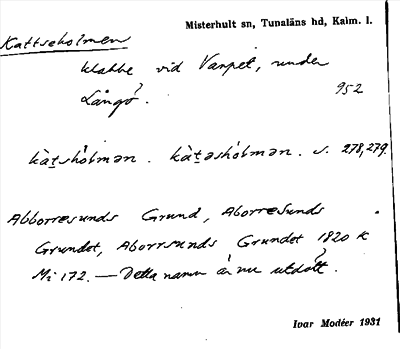 Misterhult sn, Tunaläns hd, Kalm. l.
Kattseholmen
klabbe vid Varpet, under
Långö. 952
kàtshòlmən. kàtəshólmən. s. 278, 279.
Abborresunds Grund, Aborresunds
Grundet, Aborrsunds Grundet 1820 K
Mi 172. — Detta namn är nu utdött.
Ivar Modéer 1931